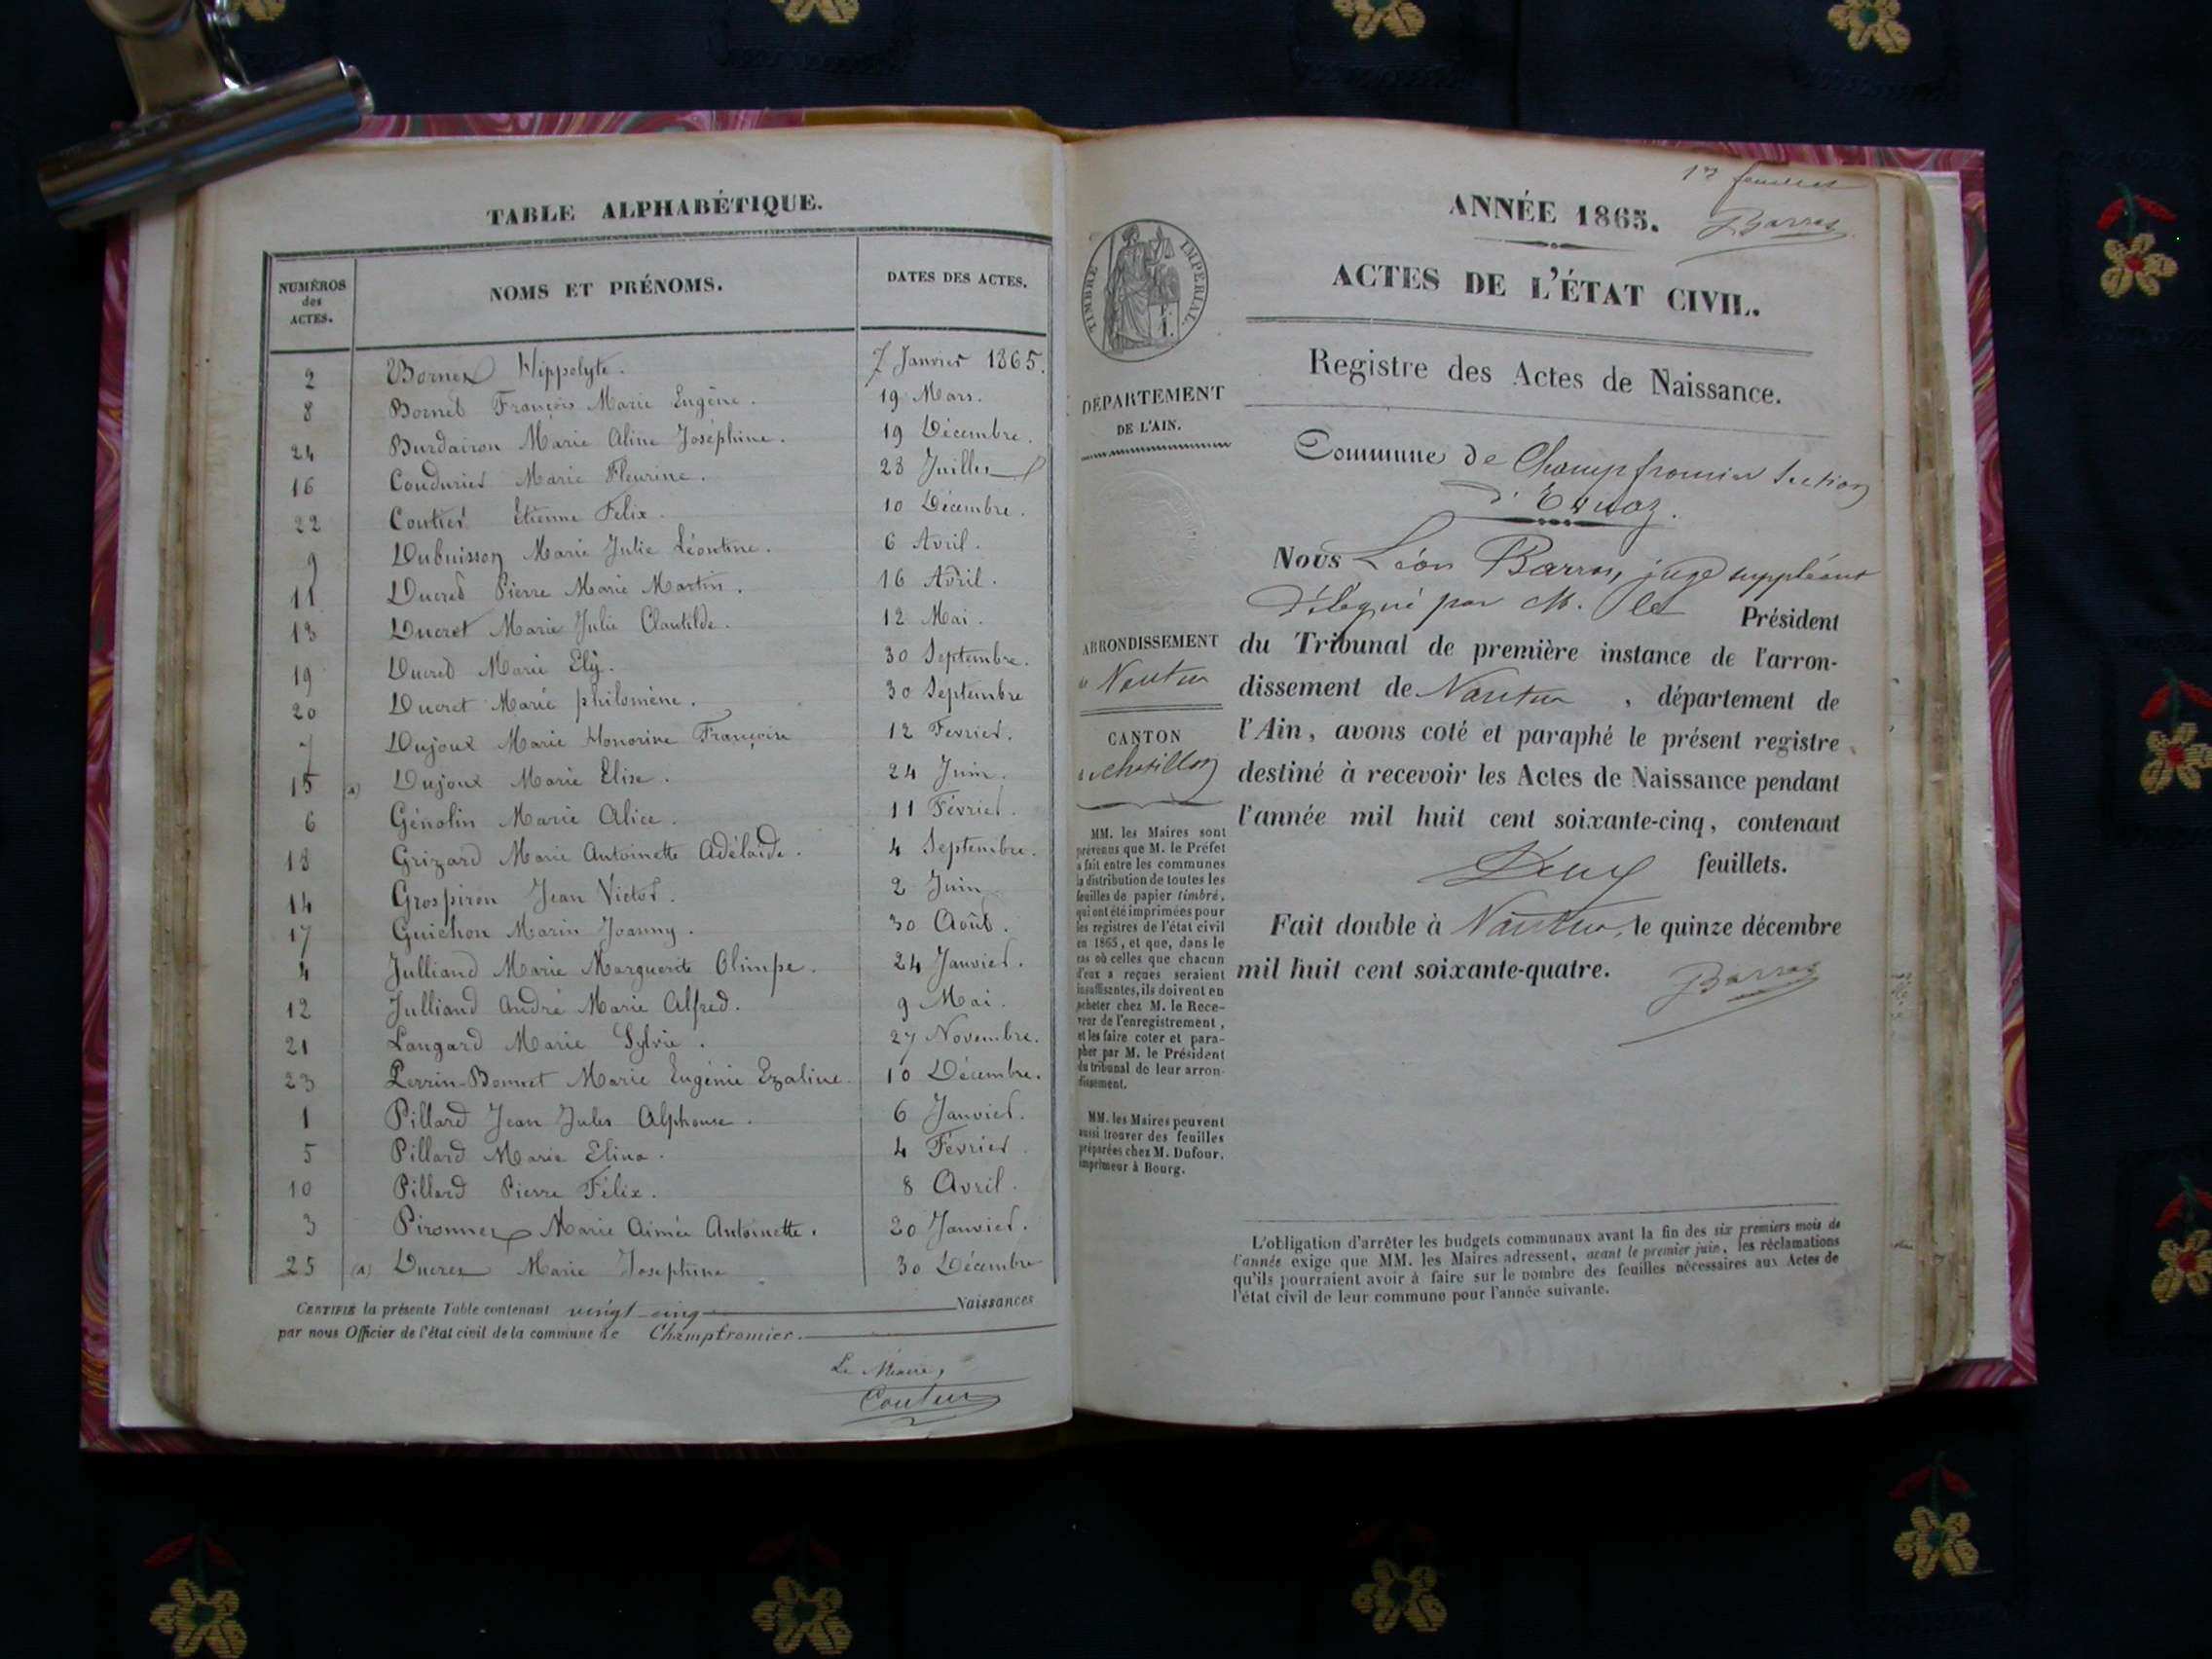 TABLE ALPHABÉTIQUE.
NUMÉROS des ACTES. NOMS ET PRÉNOMS. DATES DES ACTES.
2 Bornex Hippolyte. 7 Janvier 1865.
8 Bornet François Marie Eugène. 19 Mars.
24 Burdairon Marie Aline Joséphine. 19 Décembre.
16 Coudurier Marie Fleurine. 23 Juillet
22 Coutier Etienne Felix. 10 Décembre.
9 Dubuisson Marie Julie Léontine. 6 Avril.
11 Ducret Pierre Marie Martin. 16 Avril.
13 Ducret Marie Julie Clautilde. 12 Mai.
19 Ducret Marie Ely. 30 Septembre.
20 Ducret Marie philomène. 30 Septembre
7 Dujoux Marie Honorine Françoise 12 Fevrier.
15 (A) Dujoux Marie Elise. 24 Juin.
6 Génolin Marie Alice. 11 Février.
18 Grizard Marie Antoinette Adélaïde. 4 Septembre.
14 Grospiron Jean Victor. 2 Juin
17 Guichon Marin Joanny. 30 Août.
4 Julliand Marie Marguerite Olimpe. 24 Janvier.
12 Julliand André Marie Alfred. 9 Mai.
21 Langard Marie Sylvie. 27 Novembre.
23 Perrin-Bonnet Marie Eugénie Ezaline. 10 Décembre.
1 Pillard Jean Jules Alphonse. 6 Janvier.
5 Pillard Marie Elina. 4 Février
10 Pillard Pierre Félix. 8 Avril.
3 Pironnex Marie Aimée Antoinette. 20 Janvier.
25 (A) Ducrez Marie Josephine 30 Décembre
CERTIFIÉ la présente Table contenant vingt-cinq Naissances
par nous Officier de l'état civil de la commune de Champfromier.
Le Maire,
Coutier
Barras
ANNÉE 1865.
ACTES DE L'ÉTAT CIVIL.
Registre des Actes de Naissance.
TIMBRE IMPÉRIAL.
DÉPARTEMENT
DE L'AIN.
ARRONDISSEMENT
Nantua
CANTON
Chatillon
MM. les Maires sont
prévenus que M. le Préfet
a fait entre les communes
la distribution de toutes les
feuilles de papier timbré,
qui ont été imprimées pour
les registres de l'état civil
en 1865, et que, dans le
cas où celles que chacun
d'eux a reçues seraient
insuffisantes, ils doivent en
acheter chez M. le Rece-
veur de l'enregistrement,
et les faire coter et para-
pher par M. le Président
du tribunal de leur arron-
dissement.
MM. les Maires peuvent
aussi trouver des feuilles
préparées chez M. Dufour,
imprimeur à Bourg.
Commune de Champfromier Section
d'
Nous Léon Barras, juge suppléant
délégué par M. le Président
du Tribunal de première instance de l'arron-
dissement de Nantua, département de
l'Ain, avons coté et paraphé le présent registre
destiné à recevoir les Actes de Naissance pendant
l'année mil huit cent soixante-cinq, contenant
Deux feuillets.
Fait double à Nantua, le quinze décembre
mil huit cent soixante-quatre.
Barras
L'obligation d'arrêter les budgets communaux avant la fin des six premiers mois de
l'année exige que MM. les Maires adressent, avant le premier juin, les réclamations
qu'ils pourraient avoir à faire sur le nombre des feuilles nécessaires aux Actes de
l'état civil de leur commune pour l'année suivante.